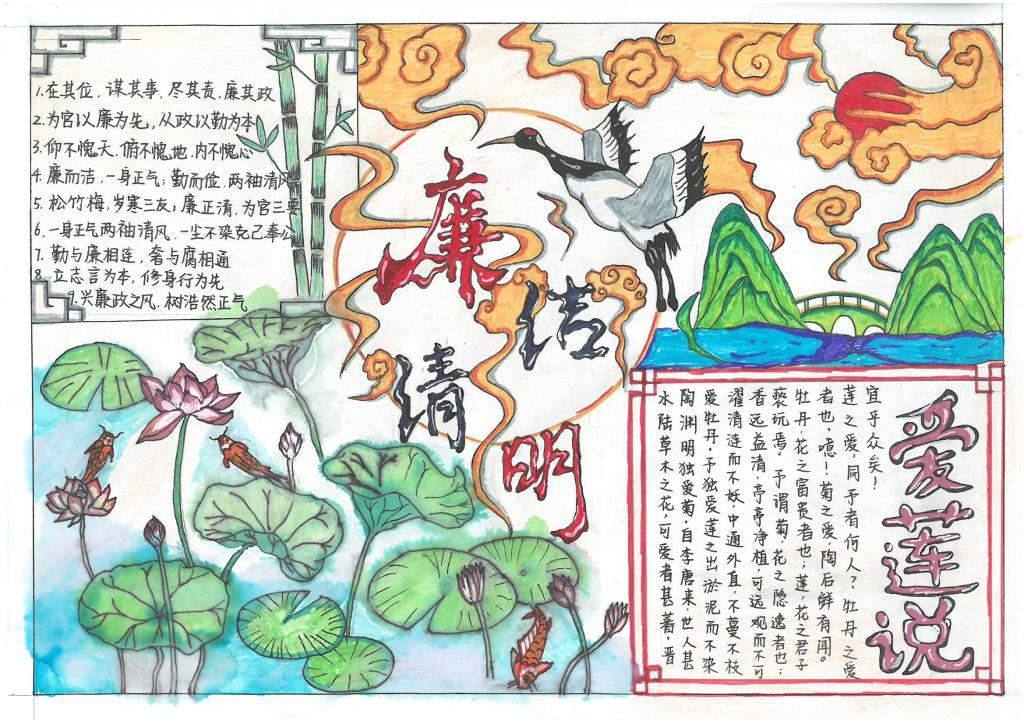 1.在其位,谋其事,尽其责,廉其政
2.为官以廉为先,从政以勤为本
3.仰不愧天,俯不愧地,内不愧心
4.廉而洁,一身正气;勤而俭,两袖清风
5.松竹梅,岁寒三友;廉正清,为官三要
6.一身正气两袖清风,一尘不染克己奉公
7.勤与廉相连,奢与腐相通
8.立志言为本,修身行为先
9.兴廉政之风,树浩然正气
廉
洁
清
明
爱莲说
水陆草木之花,可爱者甚蕃。晋
陶渊明独爱菊。自李唐来,世人甚
爱牡丹。予独爱莲之出淤泥而不染
濯清涟而不妖,中通外直,不蔓不枝
香远益清,亭亭净植,可远观而不可
亵玩焉。予谓菊,花之隐逸者也;
牡丹,花之富贵者也;莲,花之君子
者也。噫!菊之爱,陶后鲜有闻。
莲之爱,同予者何人?牡丹之爱
宜乎众矣!